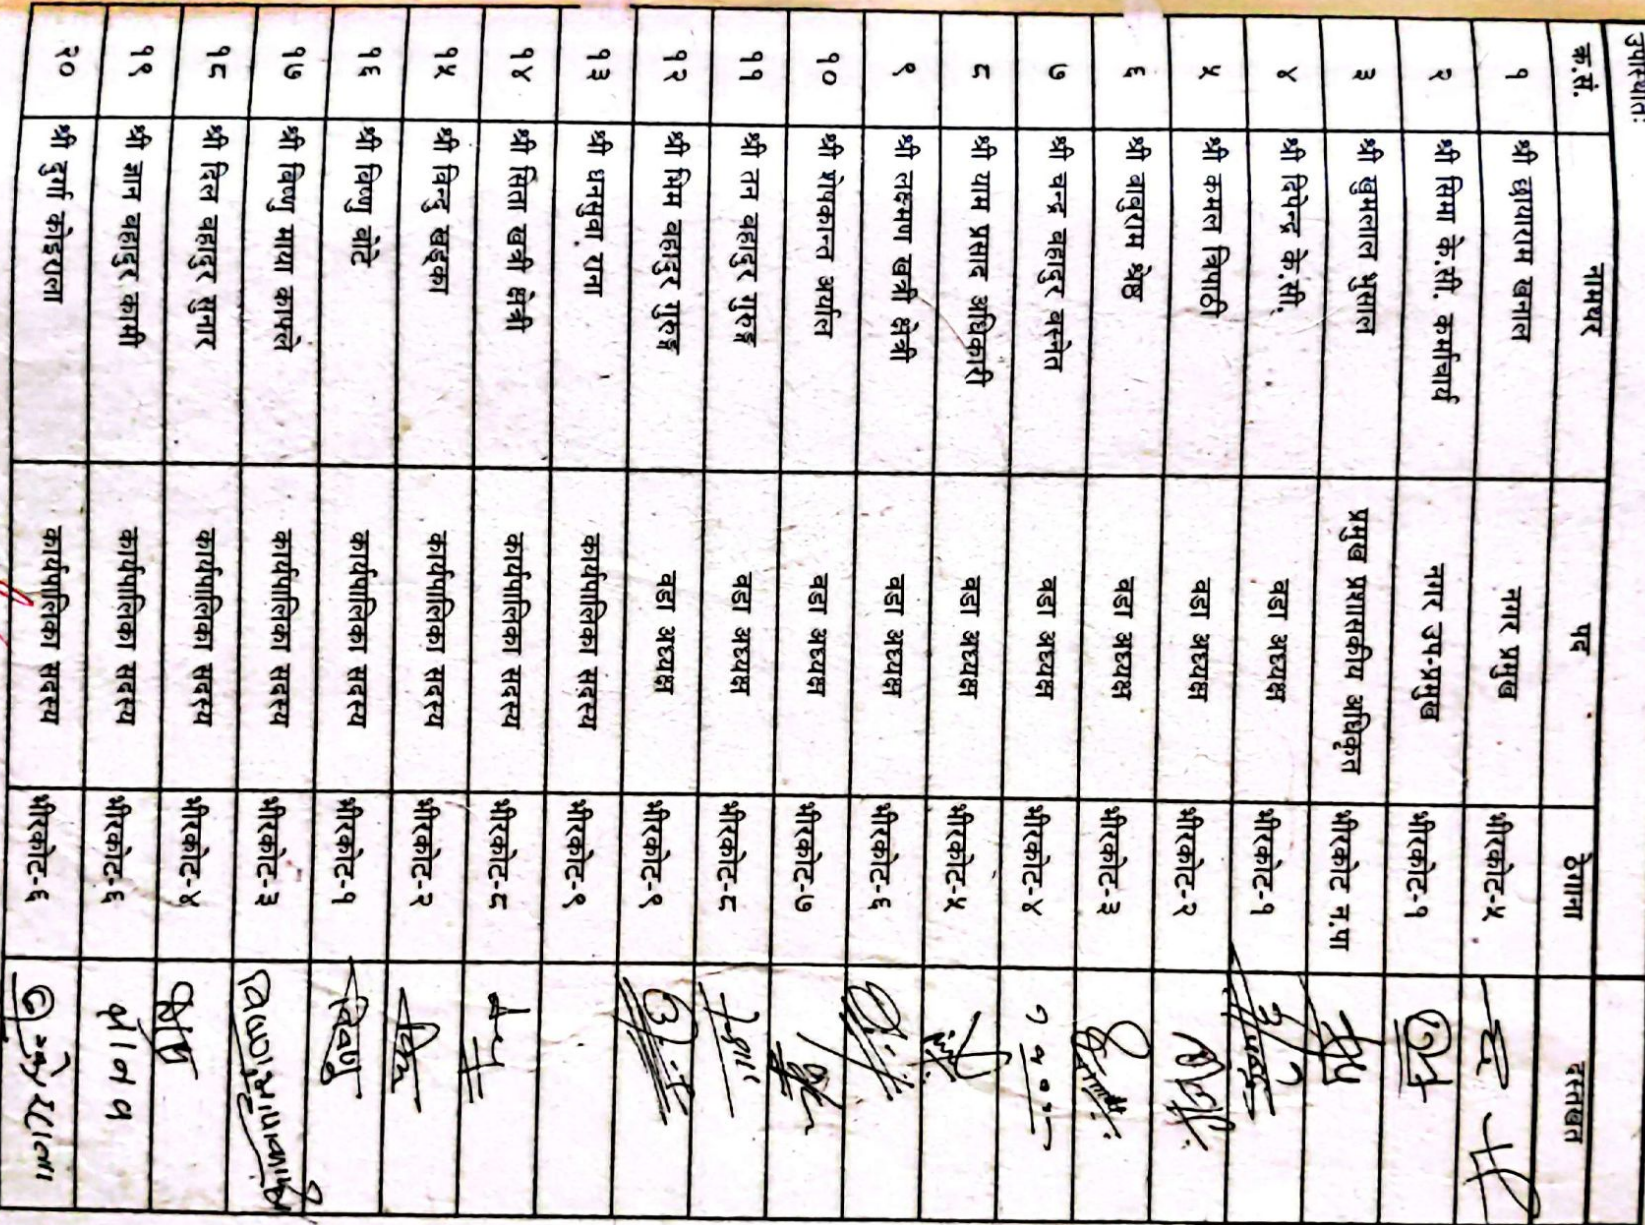 उपस्थितिः
क.सं. नामथर पद ठेगाना दस्तखत
१ श्री छायाराम खनाल नगर प्रमुख भीरकोट-५
२ श्री सिमा के.सी. कर्माचार्य नगर उप-प्रमुख भीरकोट-१
३ श्री खुमलाल भुसाल प्रमुख प्रशासकीय अधिकृत भीरकोट न.पा
४ श्री दिपेन्द्र के.सी. वडा अध्यक्ष भीरकोट-१
५ श्री कमल त्रिपाठी वडा अध्यक्ष भीरकोट-२
६ श्री वावुराम श्रेष्ठ वडा अध्यक्ष भीरकोट-३
७ श्री चन्द्र वहादुर वस्नेत वडा अध्यक्ष भीरकोट-४
८ श्री याम प्रसाद अधिकारी वडा अध्यक्ष भीरकोट-५
९ श्री लक्ष्मण खत्री क्षेत्री वडा अध्यक्ष भीरकोट-६
१० श्री शेषकान्त अर्याल वडा अध्यक्ष भीरकोट-७
११ श्री तन वहादुर गुरुङ्ग वडा अध्यक्ष भीरकोट-८
१२ श्री भिम वहादुर गुरुङ्ग वडा अध्यक्ष भीरकोट-९
१३ श्री धनसुवा राना कार्यपालिका सदस्य भीरकोट-९
१४ श्री सिता खत्री क्षेत्री कार्यपालिका सदस्य भीरकोट-८
१५ श्री विन्दु खड्का कार्यपालिका सदस्य भीरकोट-२
१६ श्री विष्णु वोटे कार्यपालिका सदस्य भीरकोट-१
१७ श्री विष्णु माया काफ्ले कार्यपालिका सदस्य भीरकोट-३
१८ श्री दिल वहादुर सुनार कार्यपालिका सदस्य भीरकोट-४
१९ श्री ज्ञान वहादुर कामी कार्यपालिका सदस्य भीरकोट-६
२० श्री दुर्गा कोइराला कार्यपालिका सदस्य भीरकोट-६